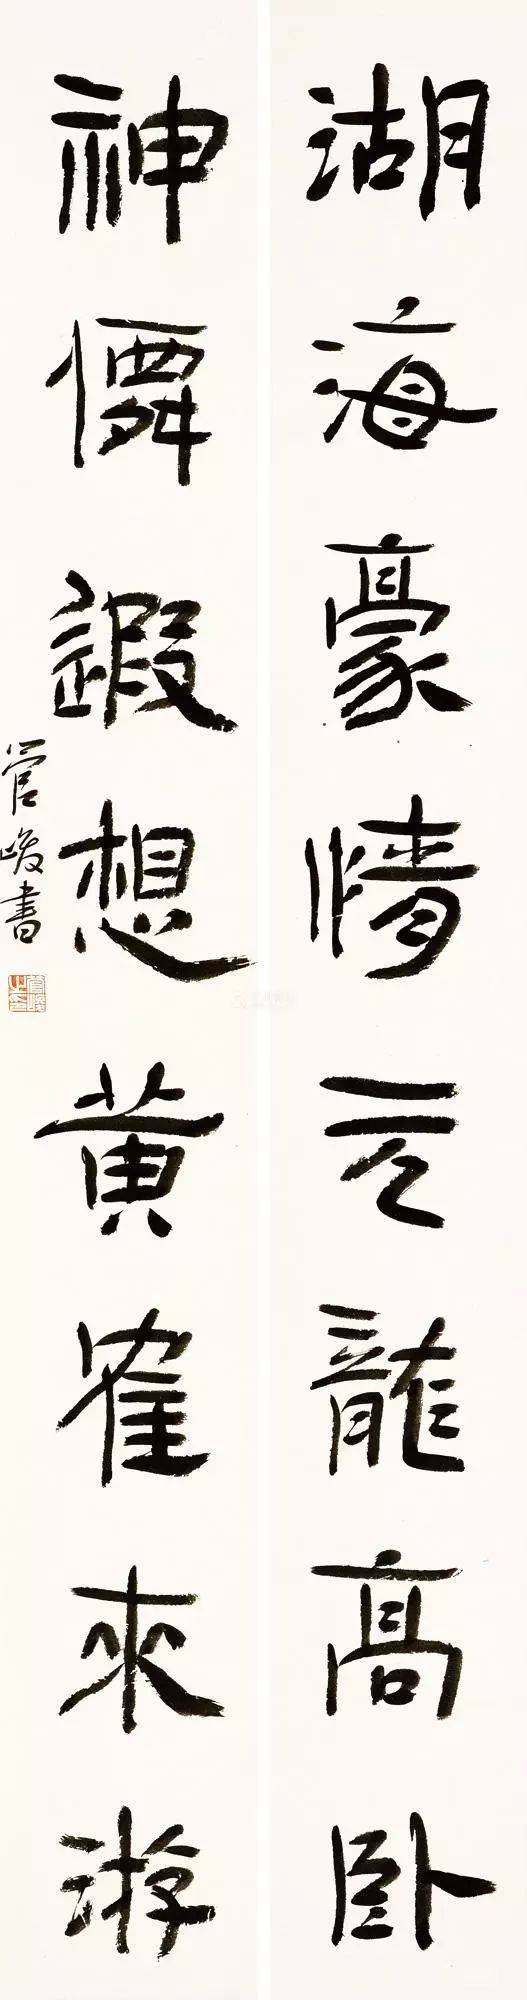 湖海豪情元龍高卧
神僊遐想黄隺來游
管峻書